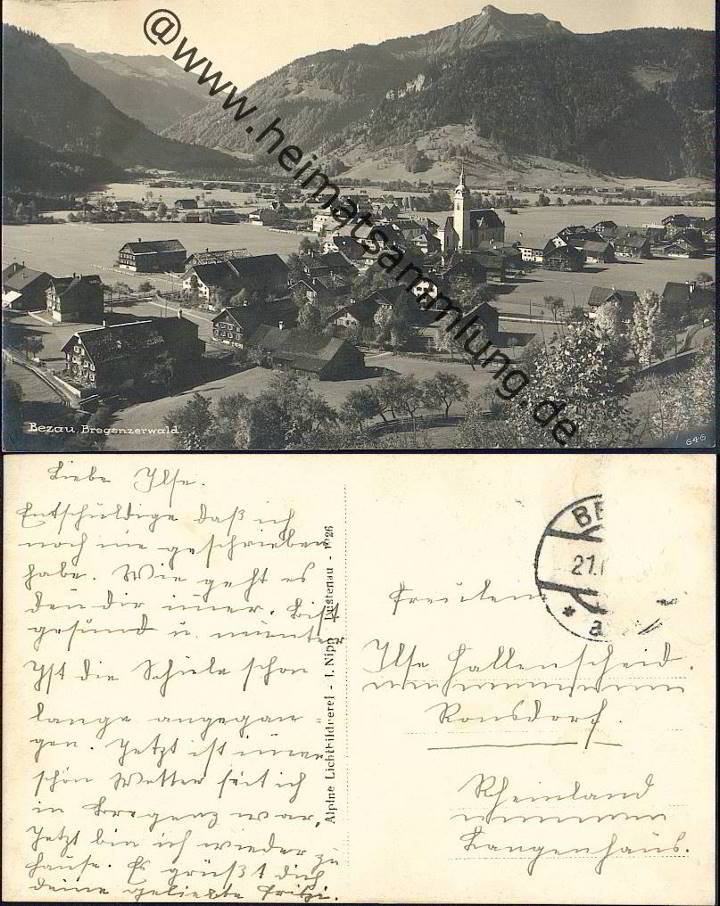 @www.heimatsammlung.de
Bezau, Bregenzerwald.
646
Liebe Ilse.
Entschuldige daß ich
noch nie geschrieben
habe. Wie geht es
den dir imer. Bist
gesund u. munter
Ist die Schule schon
lange angegan-
gen. Jetzt ist imer
schön Wetter seit ich
in Bregenz war,
Jetzt bin ich wieder zu
hause. Es grüßt dich
deine geliebte Fritzi.
Alpine Lichtbildnerei - I. Nipp Lustenau - 1926
BE
21.
* a
Freulen
Ilse Hallenscheid.
Ronsdorf.
Rheinland
Langenhaus.